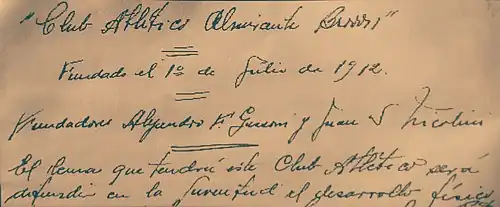 "Club Atlético Almirante Brown"
Fundado el 1º de Julio de 1912.
Fundadores Alejandro F. y Juan S Nicolini
El lema que tendrá este Club Atlético será
difundir en la juventud el desarrollo físico